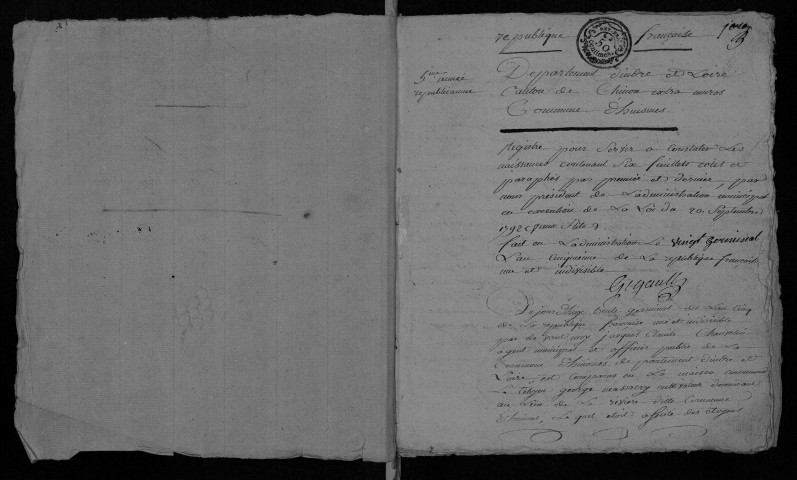 republique française
5me année
republicaine
Departement d'indre et Loire
Canton de Chinon extra muros
Commune d'huismes
Registre pour servir a constater les
naissances contenant six feuillets cotés et
paraphés par premier et dernier, par
nous président de L'administration municipal
en execution de La Loi du 20. Septembre
1792
fait en L'administration Le vingt Germinal
L'an cinquieme de La republique francoise
une et indivisible
Gigault
germinal de L'an cinq
de La republique française une et indivisible
par de vant moy jacques
agent municipal et officier public de La
Commune d'huismes departement d'indre et
Loire est comparu en La maison commune
Le Citoyen george cultivateur demeurant
au Lieu de La riviere ditte Commune
d'huismes, Le quel etoit assisté des citoyens